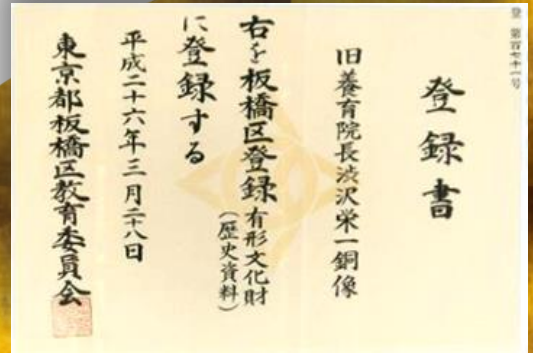 登 第百七十一号
登録書
旧養育院長渋沢栄一銅像
右を板橋区登録有形文化財
(歴史資料)
に登録する
平成二十六年三月二十八日
東京都板橋区教育委員会